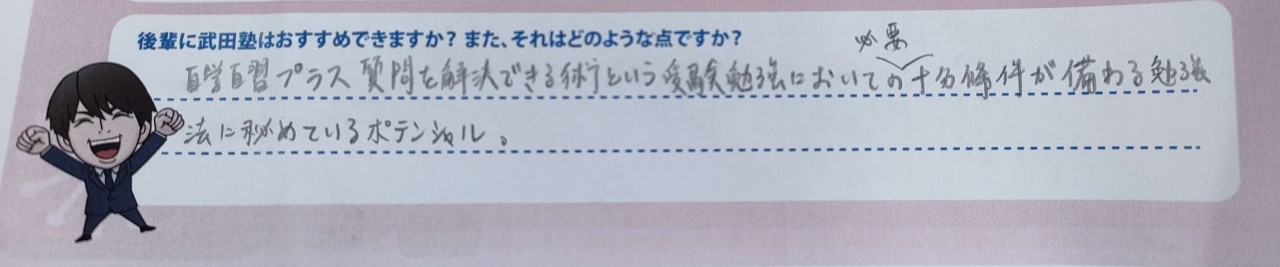 後輩に武田塾はおすすめできますか？また、それはどのような点ですか？
必要
自学自習プラス質問を解決できる術という受験勉強においての十分條件が備わる勉強
法に秘めているポテンシャル。